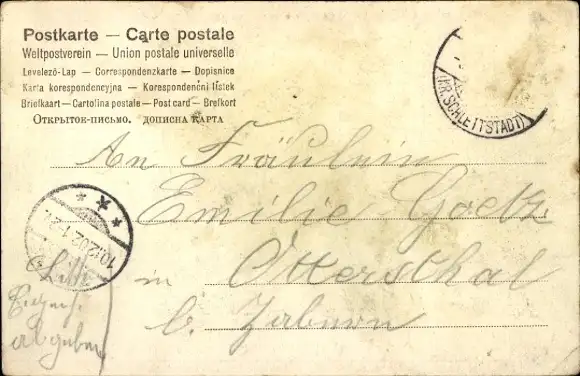 Postkarte — Carte postale
Weltpostverein — Union postale universelle
Levelező-Lap — Correspondenzkarte — Dopisnice
Karta korespondencyjna — Korespondenční lístek
Briefkaart — Cartolina postale — Post card — Brefkort
Открыток-письмо. дописна карта
(KR. SCHLETTSTADT)
An Fräulein
Emilie Goetz
in Ottersthal
b. Zabern
10.12.02.1-2N.
abgeben